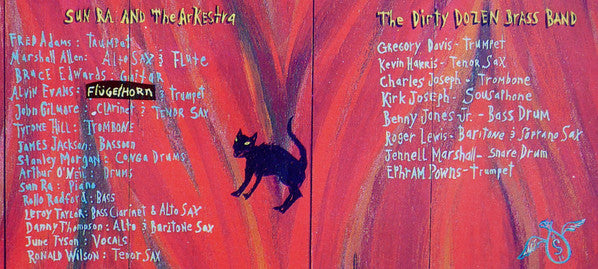 Sun Ra and The Arkestra
Fred Adams: Trumpet
Marshall Allen: Alto Sax & Flute
Bruce Edwards: Guitar
Alvin Evans: Flügelhorn & Trumpet
John Gilmore: Clarinet & Tenor Sax
Tyrone Hill: Trombone
James Jackson: Bassoon
Stanley Morgan: Conga Drums
Arthur O'Neil: Drums
Sun Ra: Piano
Rollo Radford: Bass
Leroy Taylor: Bass Clarinet & Alto Sax
Danny Thompson: Alto & Baritone Sax
June Tyson: Vocals
Ronald Wilson: Tenor Sax
The Dirty Dozen Brass Band
Gregory Davis - Trumpet
Kevin Harris - Tenor Sax
Charles Joseph - Trombone
Kirk Joseph - Sousaphone
Benny Jones Jr. - Bass Drum
Roger Lewis - Baritone & Soprano Sax
Jennell Marshall - Snare Drum
Ephram Powns - Trumpet